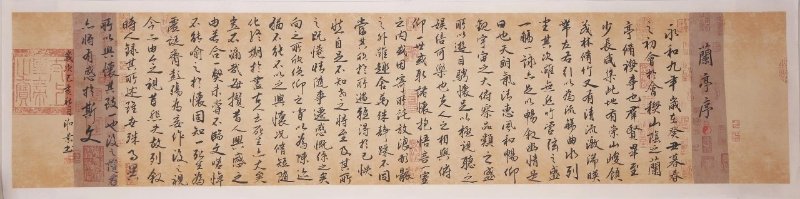 蘭亭序
永和九年歲在癸丑暮春
之初會於會稽山陰之蘭
亭脩稧事也羣賢畢至
少長咸集此地有崇山峻領
茂林脩竹又有清流激湍暎
帶左右引以為流觴曲水列
坐其次雖無絲竹管弦之盛
一觴一詠亦足以暢敘幽情是
日也天朗氣清惠風和暢仰
觀宇宙之大俯察品類之盛
所以遊目騁懷足以極視聽之
娛信可樂也夫人之相與俯
仰一世或取諸懷抱悟言一室
之內或因寄所託放浪形骸
之外雖趣舍萬殊靜躁不同
當其欣於所遇暫得於己快
然自足不知老之將至及其所
之既惓情隨事遷感慨係之矣
向之所欣俛仰之間以為陳迹
猶不能不以之興懷況脩短隨
化終期於盡古人云死生亦大矣
豈不痛哉每攬昔人興感之
由若合一契未嘗不臨文嗟悼
不能喻之於懷固知一死生為
虛誕齊彭殤為妄作後之視
今亦由今之視昔悲夫故列敘
時人錄其所述雖世殊事異
所以興懷其致一也後之攬者
亦將有感於斯文